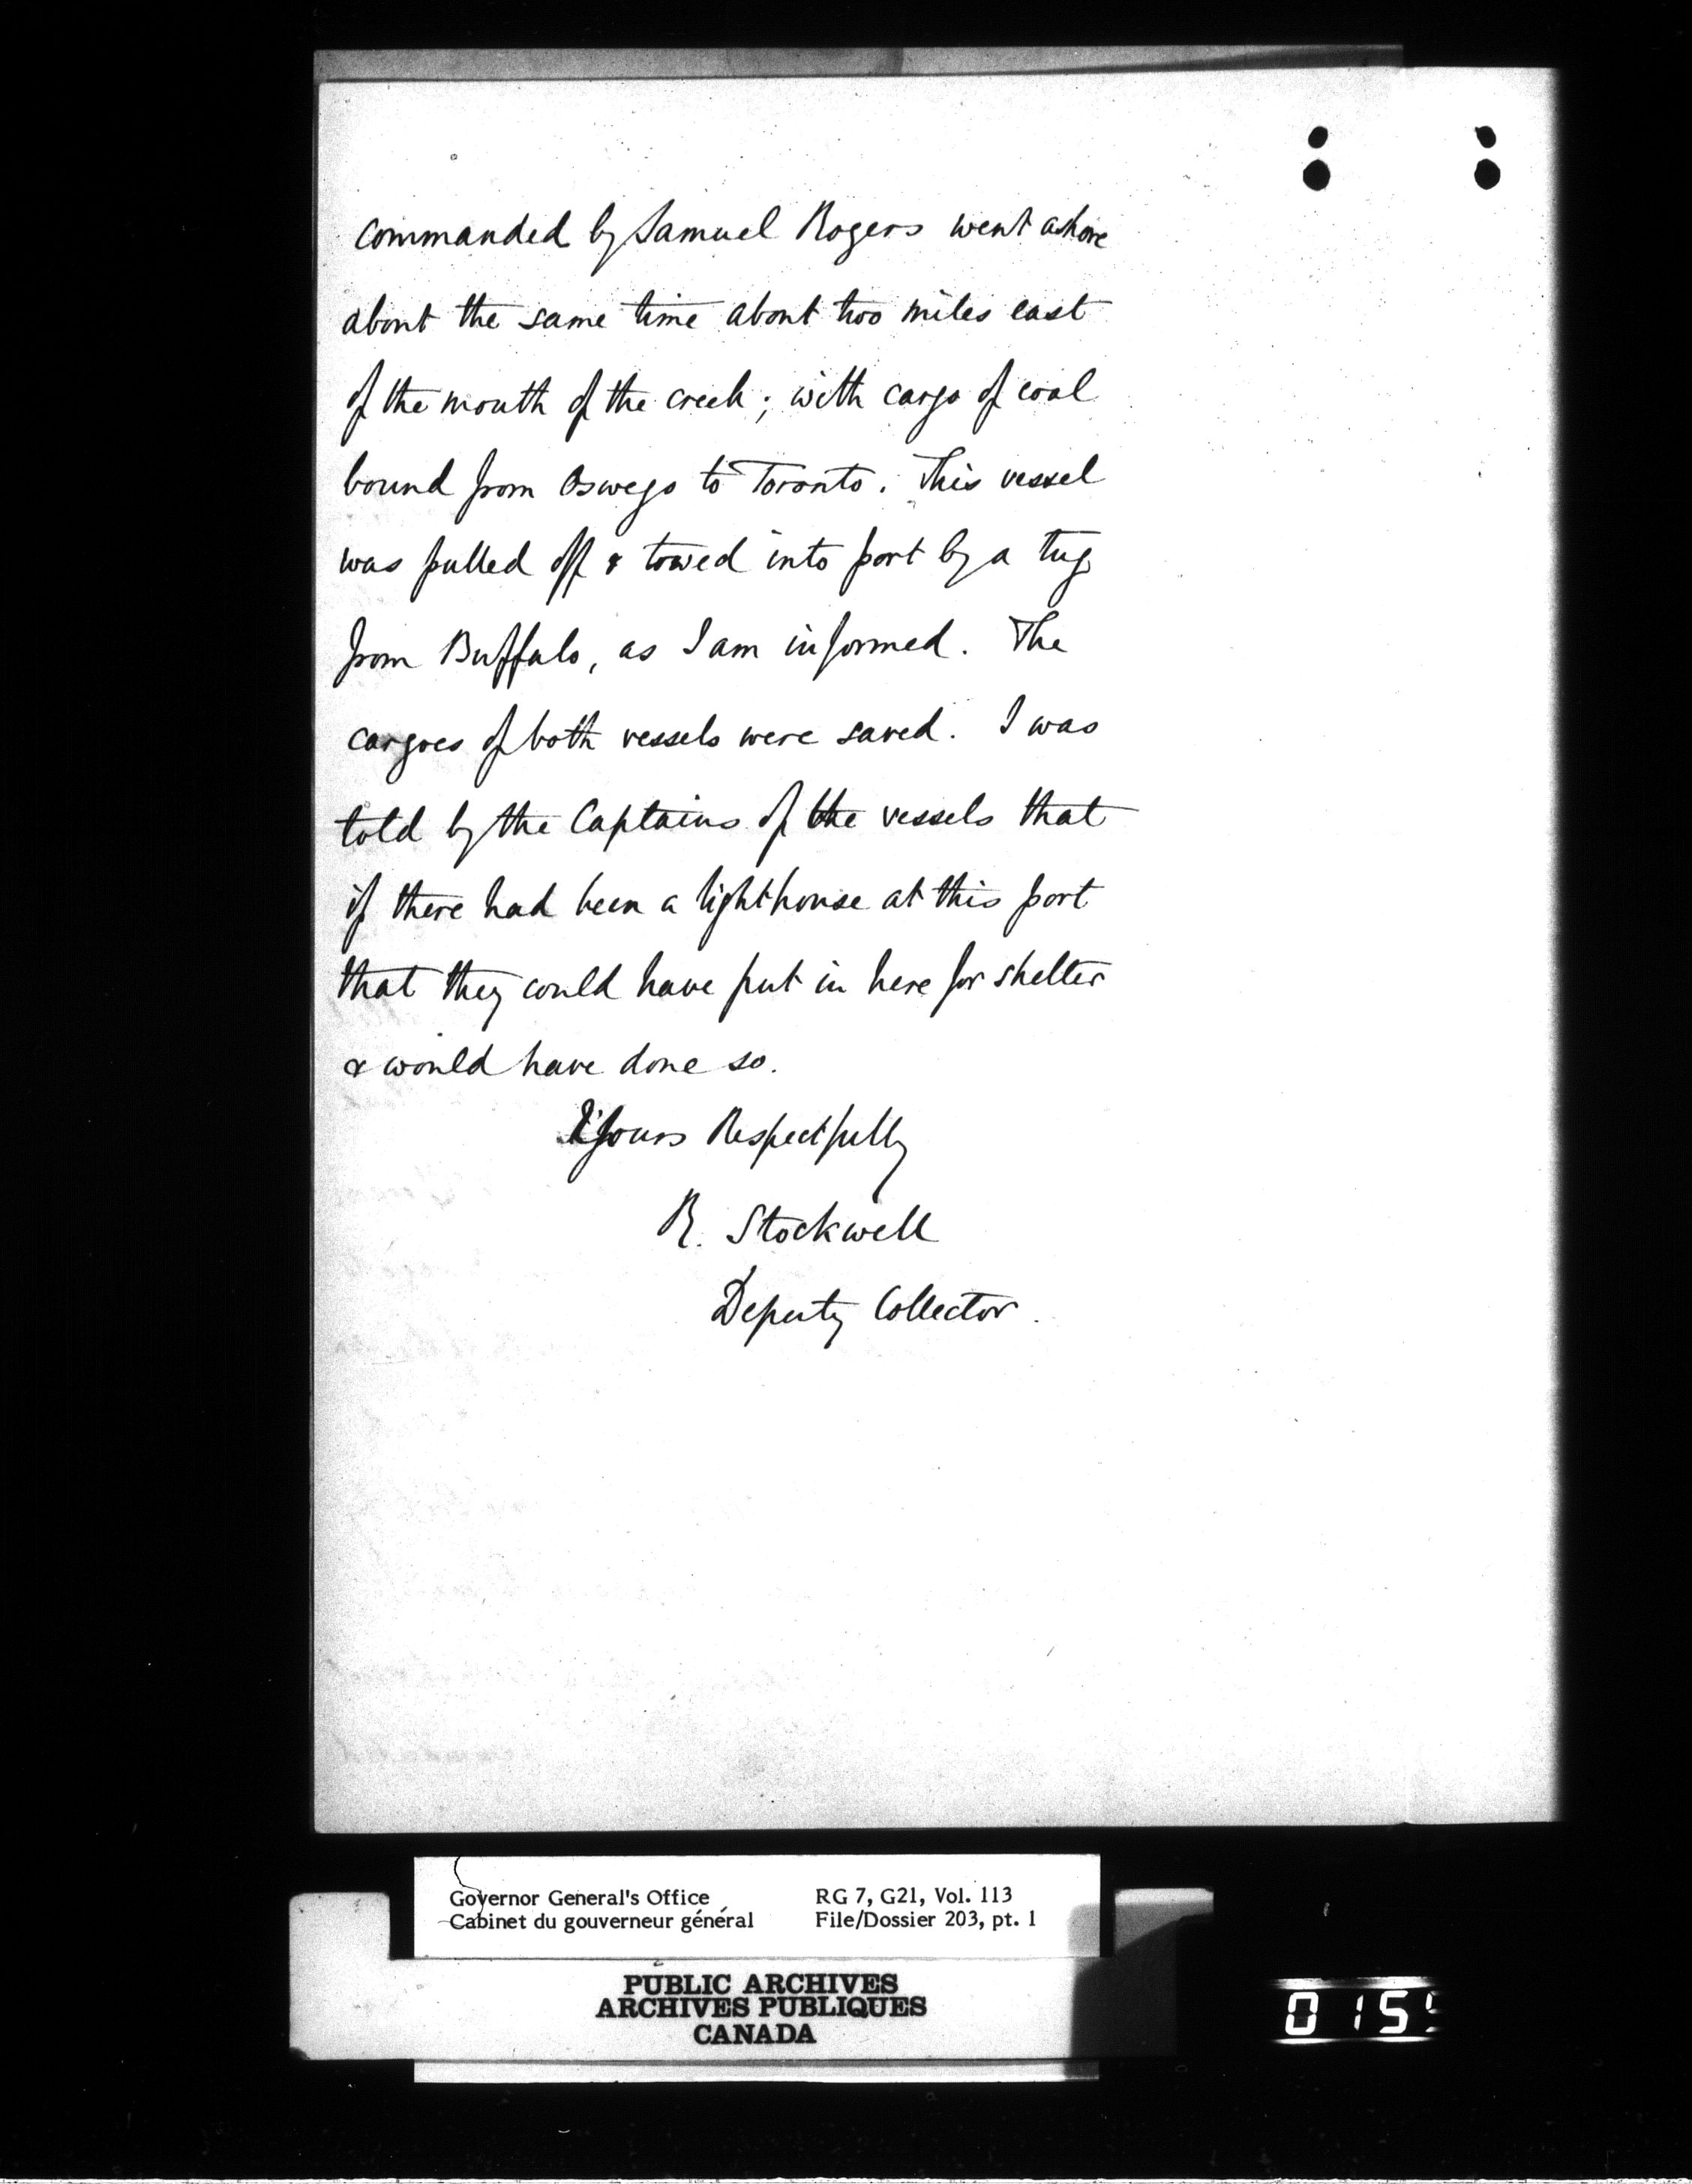 commanded by Samuel Rogers went ashore
about the same time about two miles east
of the mouth of the creek; with cargo of coal
bound from Oswego to Toronto. This vessel
was pulled off & towed into port by a tug
from Buffalo, as I am informed. The
cargoes of both vessels were saved. I was
told by the Captains of the vessels that
if there had been a lighthouse at this port
that they could have put in here for shelter
& would have done so.
Yours Respectfully
R. Stockwell
Deputy Collector.
Governor General's Office RG 7, G21, Vol. 113
Cabinet du gouverneur général File/Dossier 203, pt. 1
PUBLIC ARCHIVES
ARCHIVES PUBLIQUES
CANADA
015